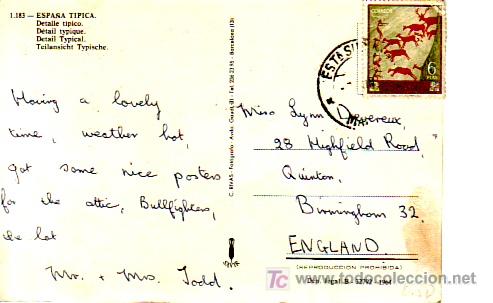 1.183 - ESPAÑA TIPICA.
Detalle típico.
Détail typique.
Detail Typical.
Teilansicht Typische.
Having a lovely
time, weather hot,
got some nice posters
for the attic, Bullfighters,
the lot
Mr. + Mrs. Todd.
C. RIVAS - Fotógrafo - Avda.
Barcelona (13)
CORREOS
6
PTAS
ESPAÑA
Miss Lynn Devereux,
28 Highfield Road,
Quinton,
Birmingham 32.
ENGLAND.
(REPRODUCCION PROHIBIDA)
Dep. legal B.
todocoleccion.net